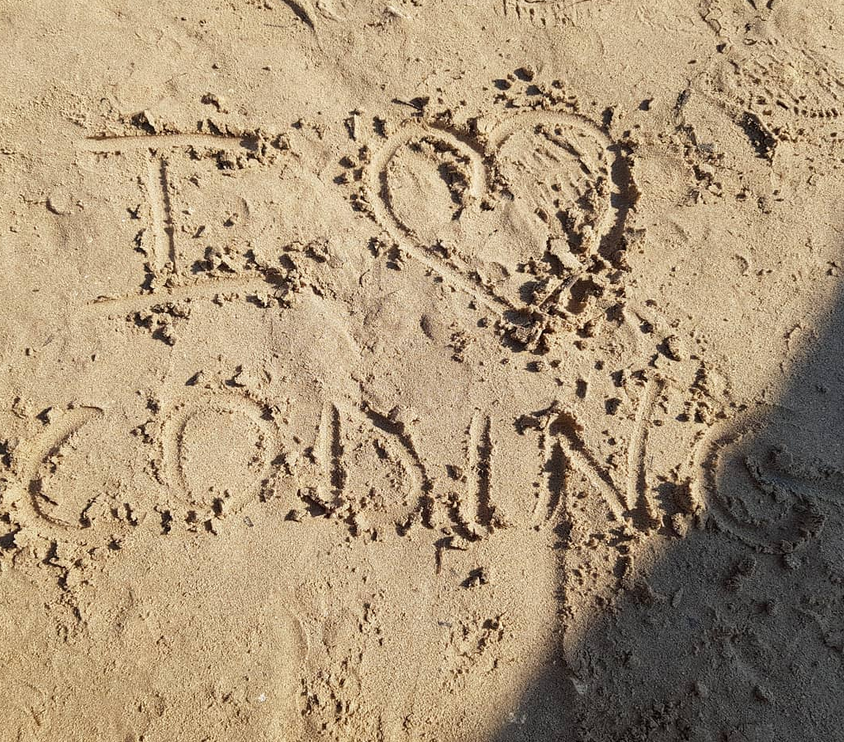 I ♥
CODING